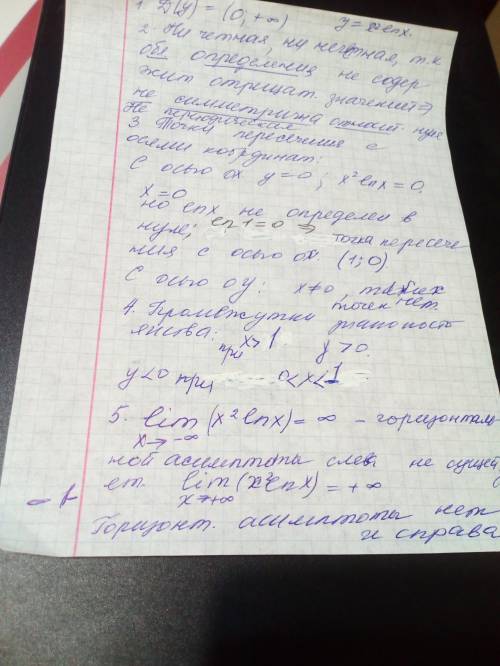 1. D(y) = (0, +∞) y = x²lnx.
2. Ни четная, ни нечетная, т.к.
обл определения не содер
жит отрицат. значений ⇒
не симметрична относит. нуля
Не периодическая
3. Точки пересечения с
осями координат:
С осью ox y=0; x²lnx=0.
x=0
но lnx не определен в
нуле; ln1=0 ⇒ точка пересече
ния с осью ox (1; 0).
С осью oy: x≠0, таких
точек нет.
4. Промежутки знакопост
оянства:
при x>1 y>0.
y<0 при 0<x<1
5. lim (x²lnx) = ∞ – горизонталь
x→-∞
ной асимптоты слева не сущест
ет. lim (x²lnx) = +∞
x→+∞
Горизонт. асимптоты нет
и справа